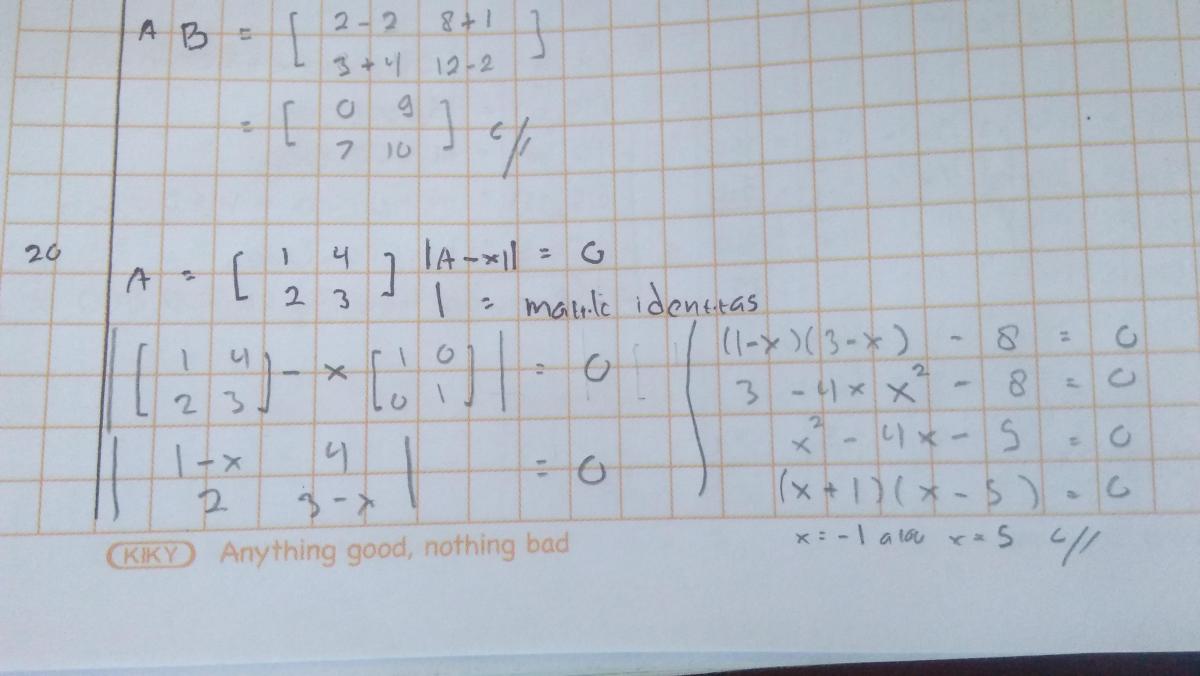 A B = [ 2-2 8+1
3+4 12-2 ]
= [ 0 9
7 10 ] C//
20
A = [ 1 4
2 3 ] |A-xI| = 0
I = matric identitas
| [ 1 4
2 3 ] - x [ 1 0
0 1 ] | = 0
| 1-x 4
2 3-x | = 0
(1-x)(3-x) - 8 = 0
3 -4x x² - 8 = 0
x² - 4x - 5 = 0
(x+1)(x-5) = 0
x = -1 atau x = 5 C//
KIKY Anything good, nothing bad